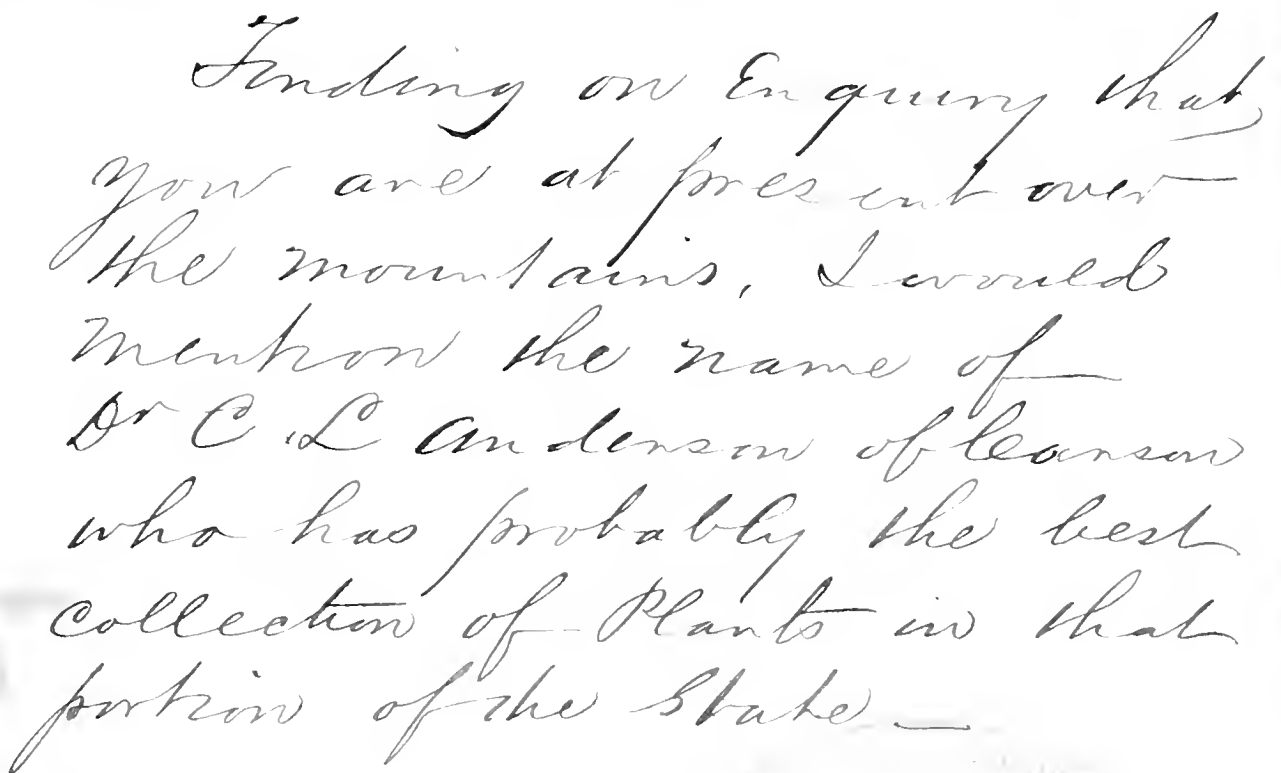 Finding on Enquiry that
you are at present over
the mountains, I would
mention the name of
Dr C. L Anderson of Carson
who has probably the best
collection of Plants in that
portion of the State —